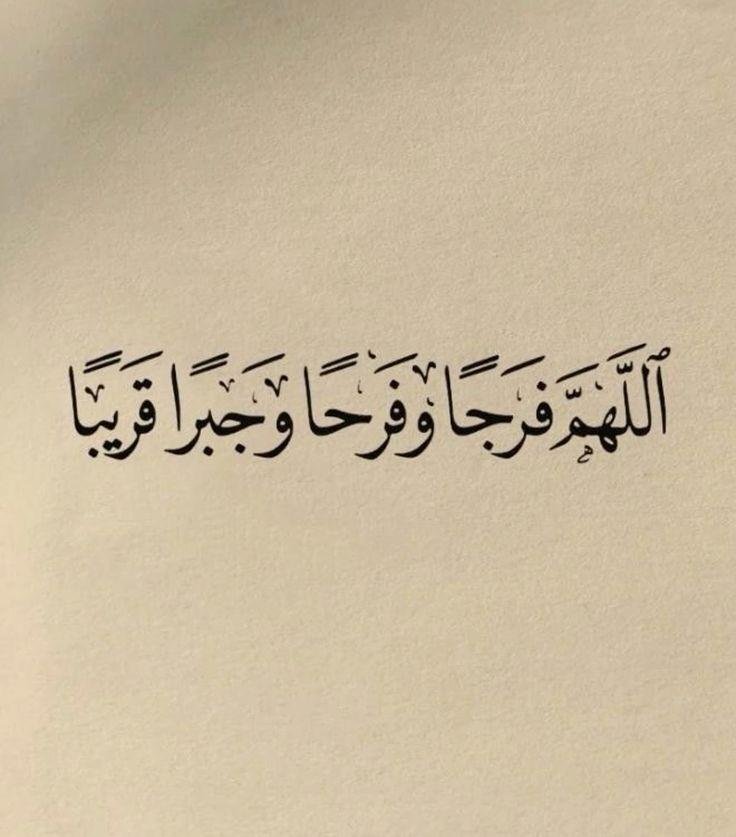 ٱللَّهُمَّ فَرَجًا وَفَرَحًا وَجَبَرًا قَرِيبًا